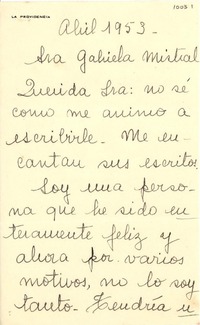 1003 1
LA PROVIDENCIA
Abril 1953_
Sra Gabriela Mistral
Querida Sra: no sé
como me animo a
escribirle_ Me en-
cantan sus escritos.
Soy una perso-
na que he sido en
teramente feliz y
ahora por varios
motivos, no lo soy
tanto_ Tendría u